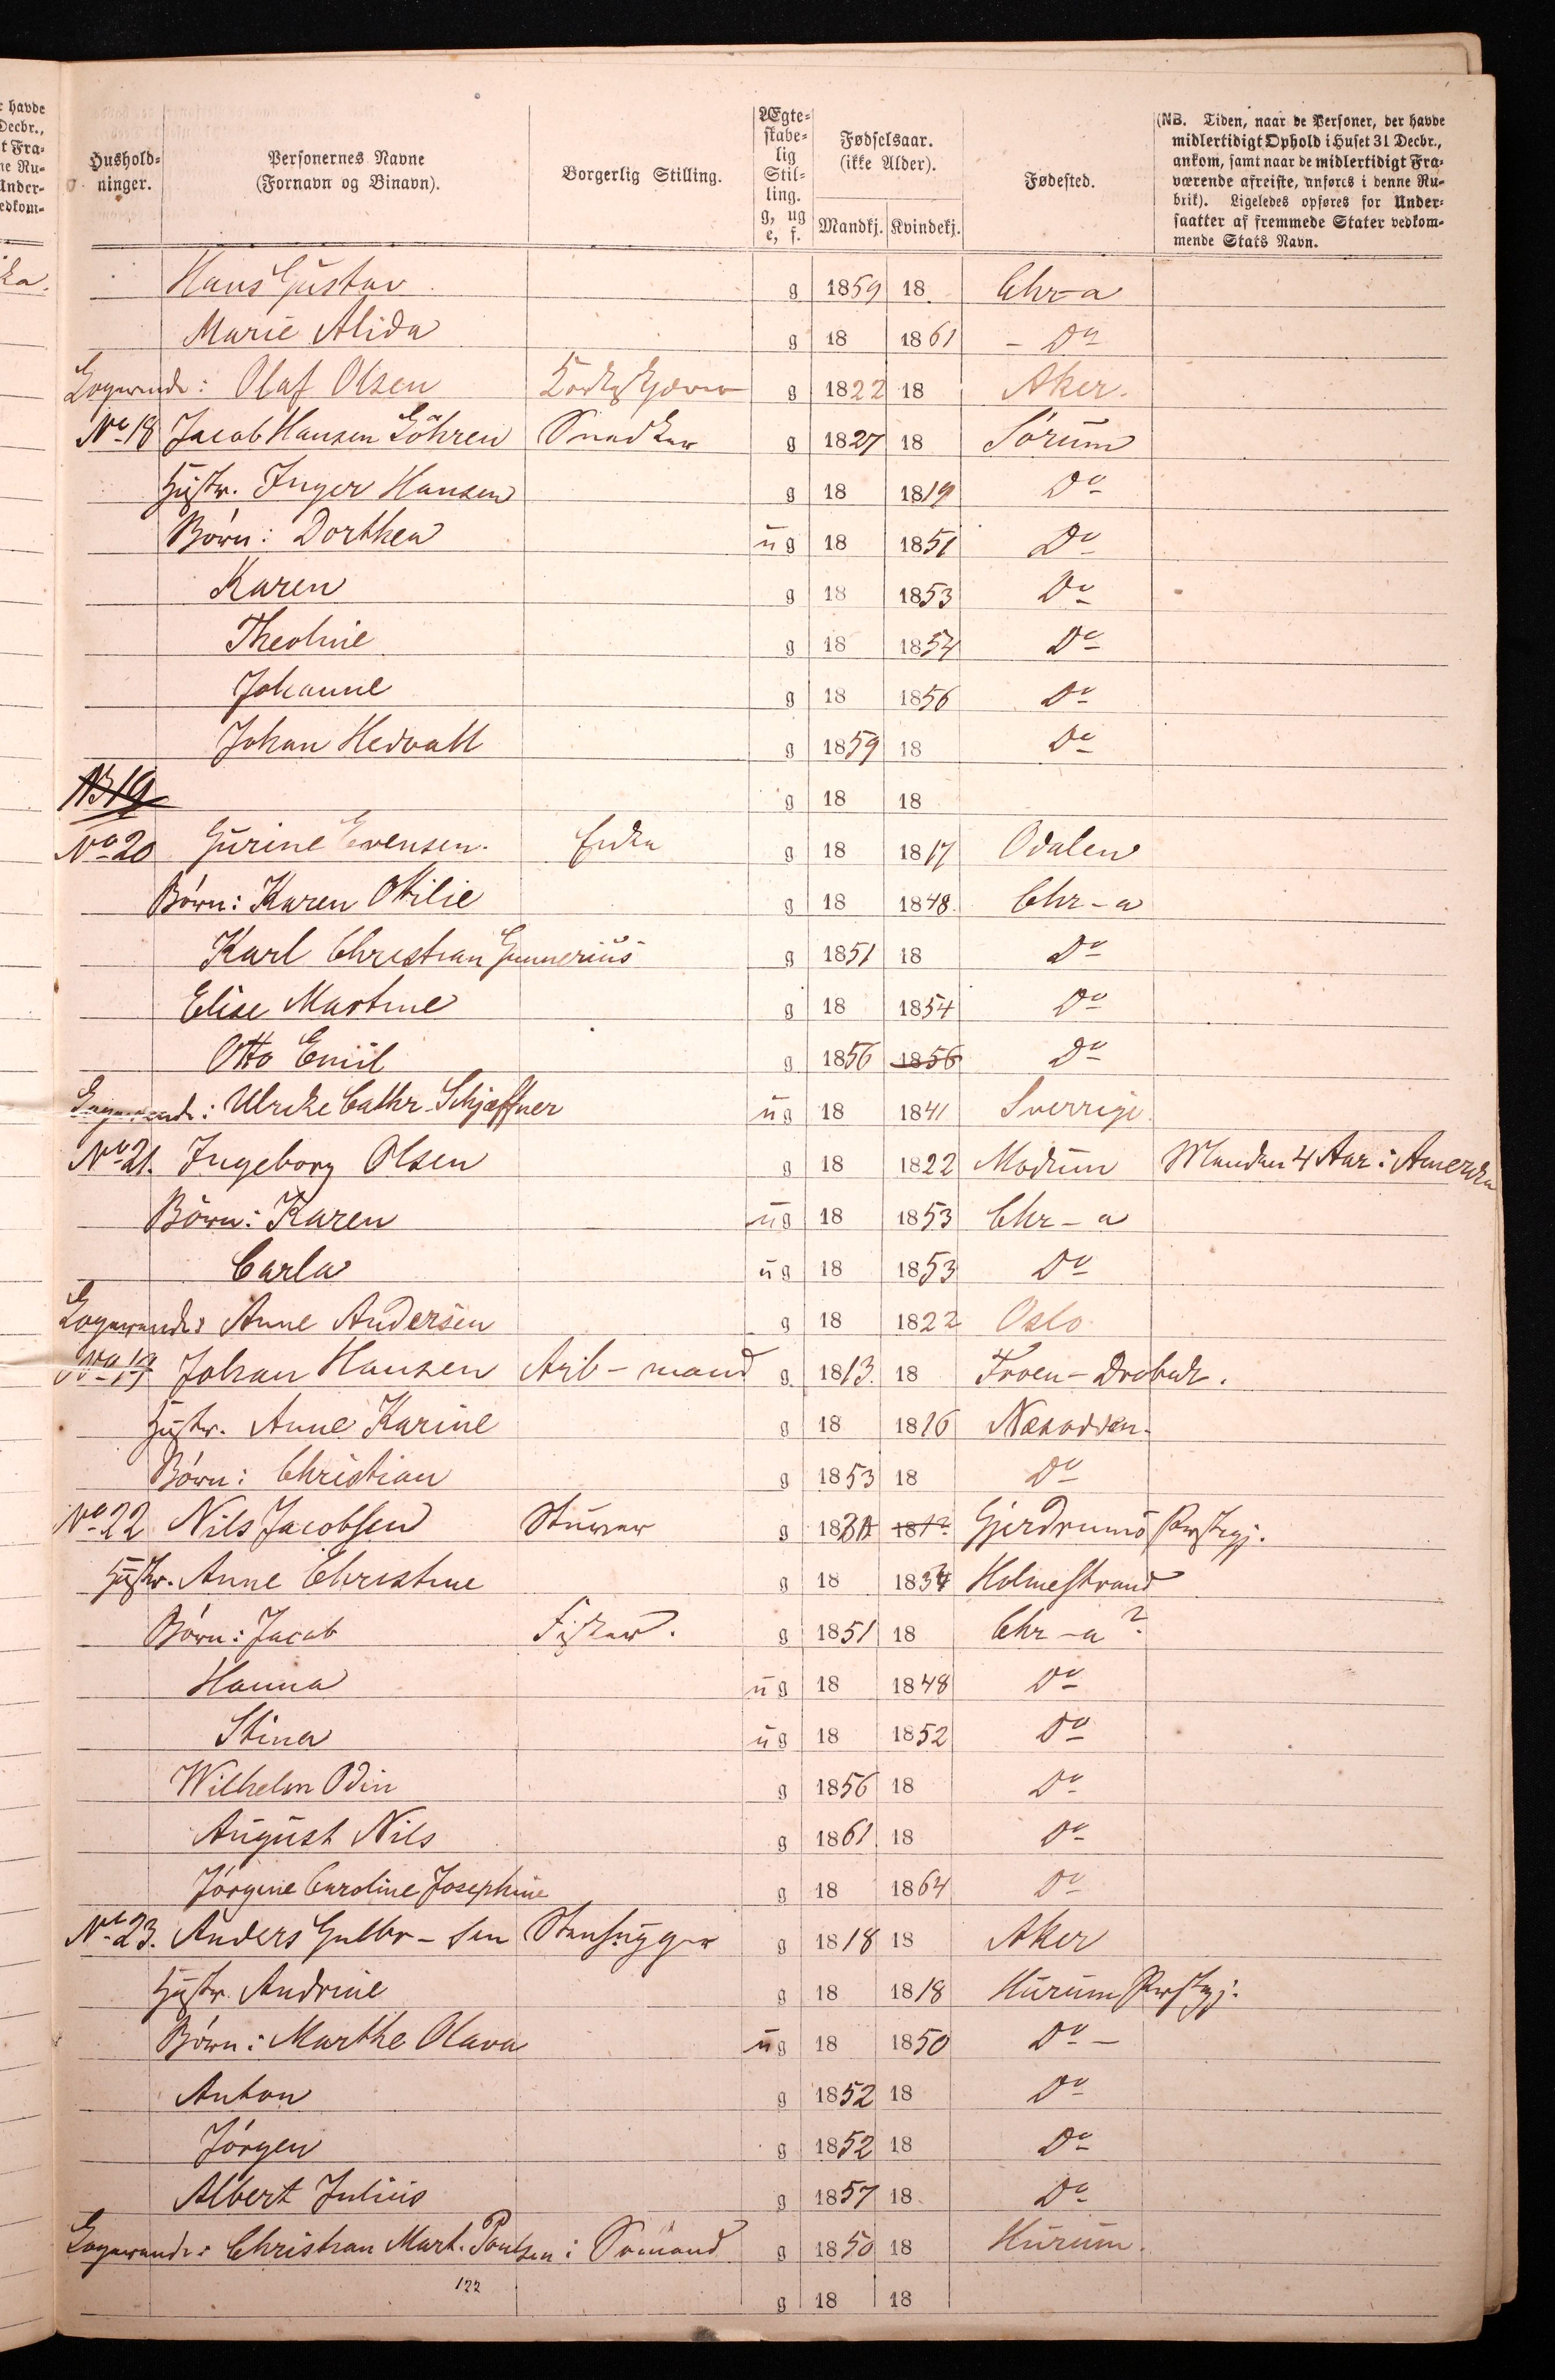 r havde
Decbr.,
t Fra-
ne Ru-
Under-
edkom-
ka.
Hushold-
ninger.
Personernes Navne
(Fornavn og Binavn).
Borgerlig Stilling.
Ægte-
skabe-
lig
Stil-
ling.
g, ug
e, f.
Fødselsaar.
(ikke Alder).
Mandkj. Kvindekj.
Fødested.
(NB. Tiden, naar de Personer, der havde
midlertidigt Ophold i Huset 31 Decbr.,
ankom, samt naar de midlertidigt Fra-
værende afreiste, anføres i denne Ru-
brik). Ligeledes opføres for Under-
saatter af fremmede Stater vedkom-
mende Stats Navn.
Hans Gustav g 1859 18 Chr-a
Marie Alida g 18 1861 - Do
Logerende: Olaf Olsen g 1822 18 Aker.
No 18 Jacob Hansen Løhren Snedker g 1827 18 Sørum
Hustr. Inger Hansen g 18 1819 Do
Børn: Dorthea ug 18 1851 Do
Karen g 18 1853 Do
Theoline g 18 1854 Do
Johanne g 18 1856 Do
Johan Hedvall g 1859 18 Do
No 19 g 18 18
No 20 Gurine Evensen. Enke g 18 1817 Odalen
Børn: Karen Otilie g 18 1848. Chr-a
Karl Christian Gunnerius g 1851 18 Do
Elise Martine g 18 1854 Do
Otto Emil g 1856 1856 Do
Logerende: Ulrike Cathr. Schjæffner ug 18 1841 Sverrige.
No 21. Ingeborg Olsen g 18 1822 Modum Manden 4 Aar i Amerika
Børn: Karen ug 18 1853 Chr-a
Carla ug 18 1853 Do
Logerende: Anne Andersen g 18 1822 Oslo
No 19 Johan Hansen Arb-mand g. 1813. 18 Froen-Drøbak.
Hustr. Anne Karine g 18 1816 Næsodden.
Børn: Christian g 1853 18 Do
No 22 Nils Jacobsen Stuver g 18 Gjerdrums Prstgj.
Hustr. Anne Christine g 18 1834 Holmestrand
Børn: Jacob Fisker. g 1851 18 Chr-a?
Hanna ug 18 1848 Do
Stina ug 18 1852 Do
Wilhelm Odin g 1856 18 Do
August Nils g 1861. 18 Do
Jørgine Caroline Josephine g 18 1864 Do
No 23. Anders Gulbr-sen Stenhugger g 1818 18 Aker
Hustr. Andrine g 18 1818 Hurum Prstgj.
Børn: Marthe Olava ug 18 1850 Do -
Anton g 1852 18 Do
Jørgen g 1852 18 Do
Albert Julius g 1857 18. Do
Logerende: Christian Mart. Poulsen: Sømand g 1850 18 Hurum.
122 g 18 18